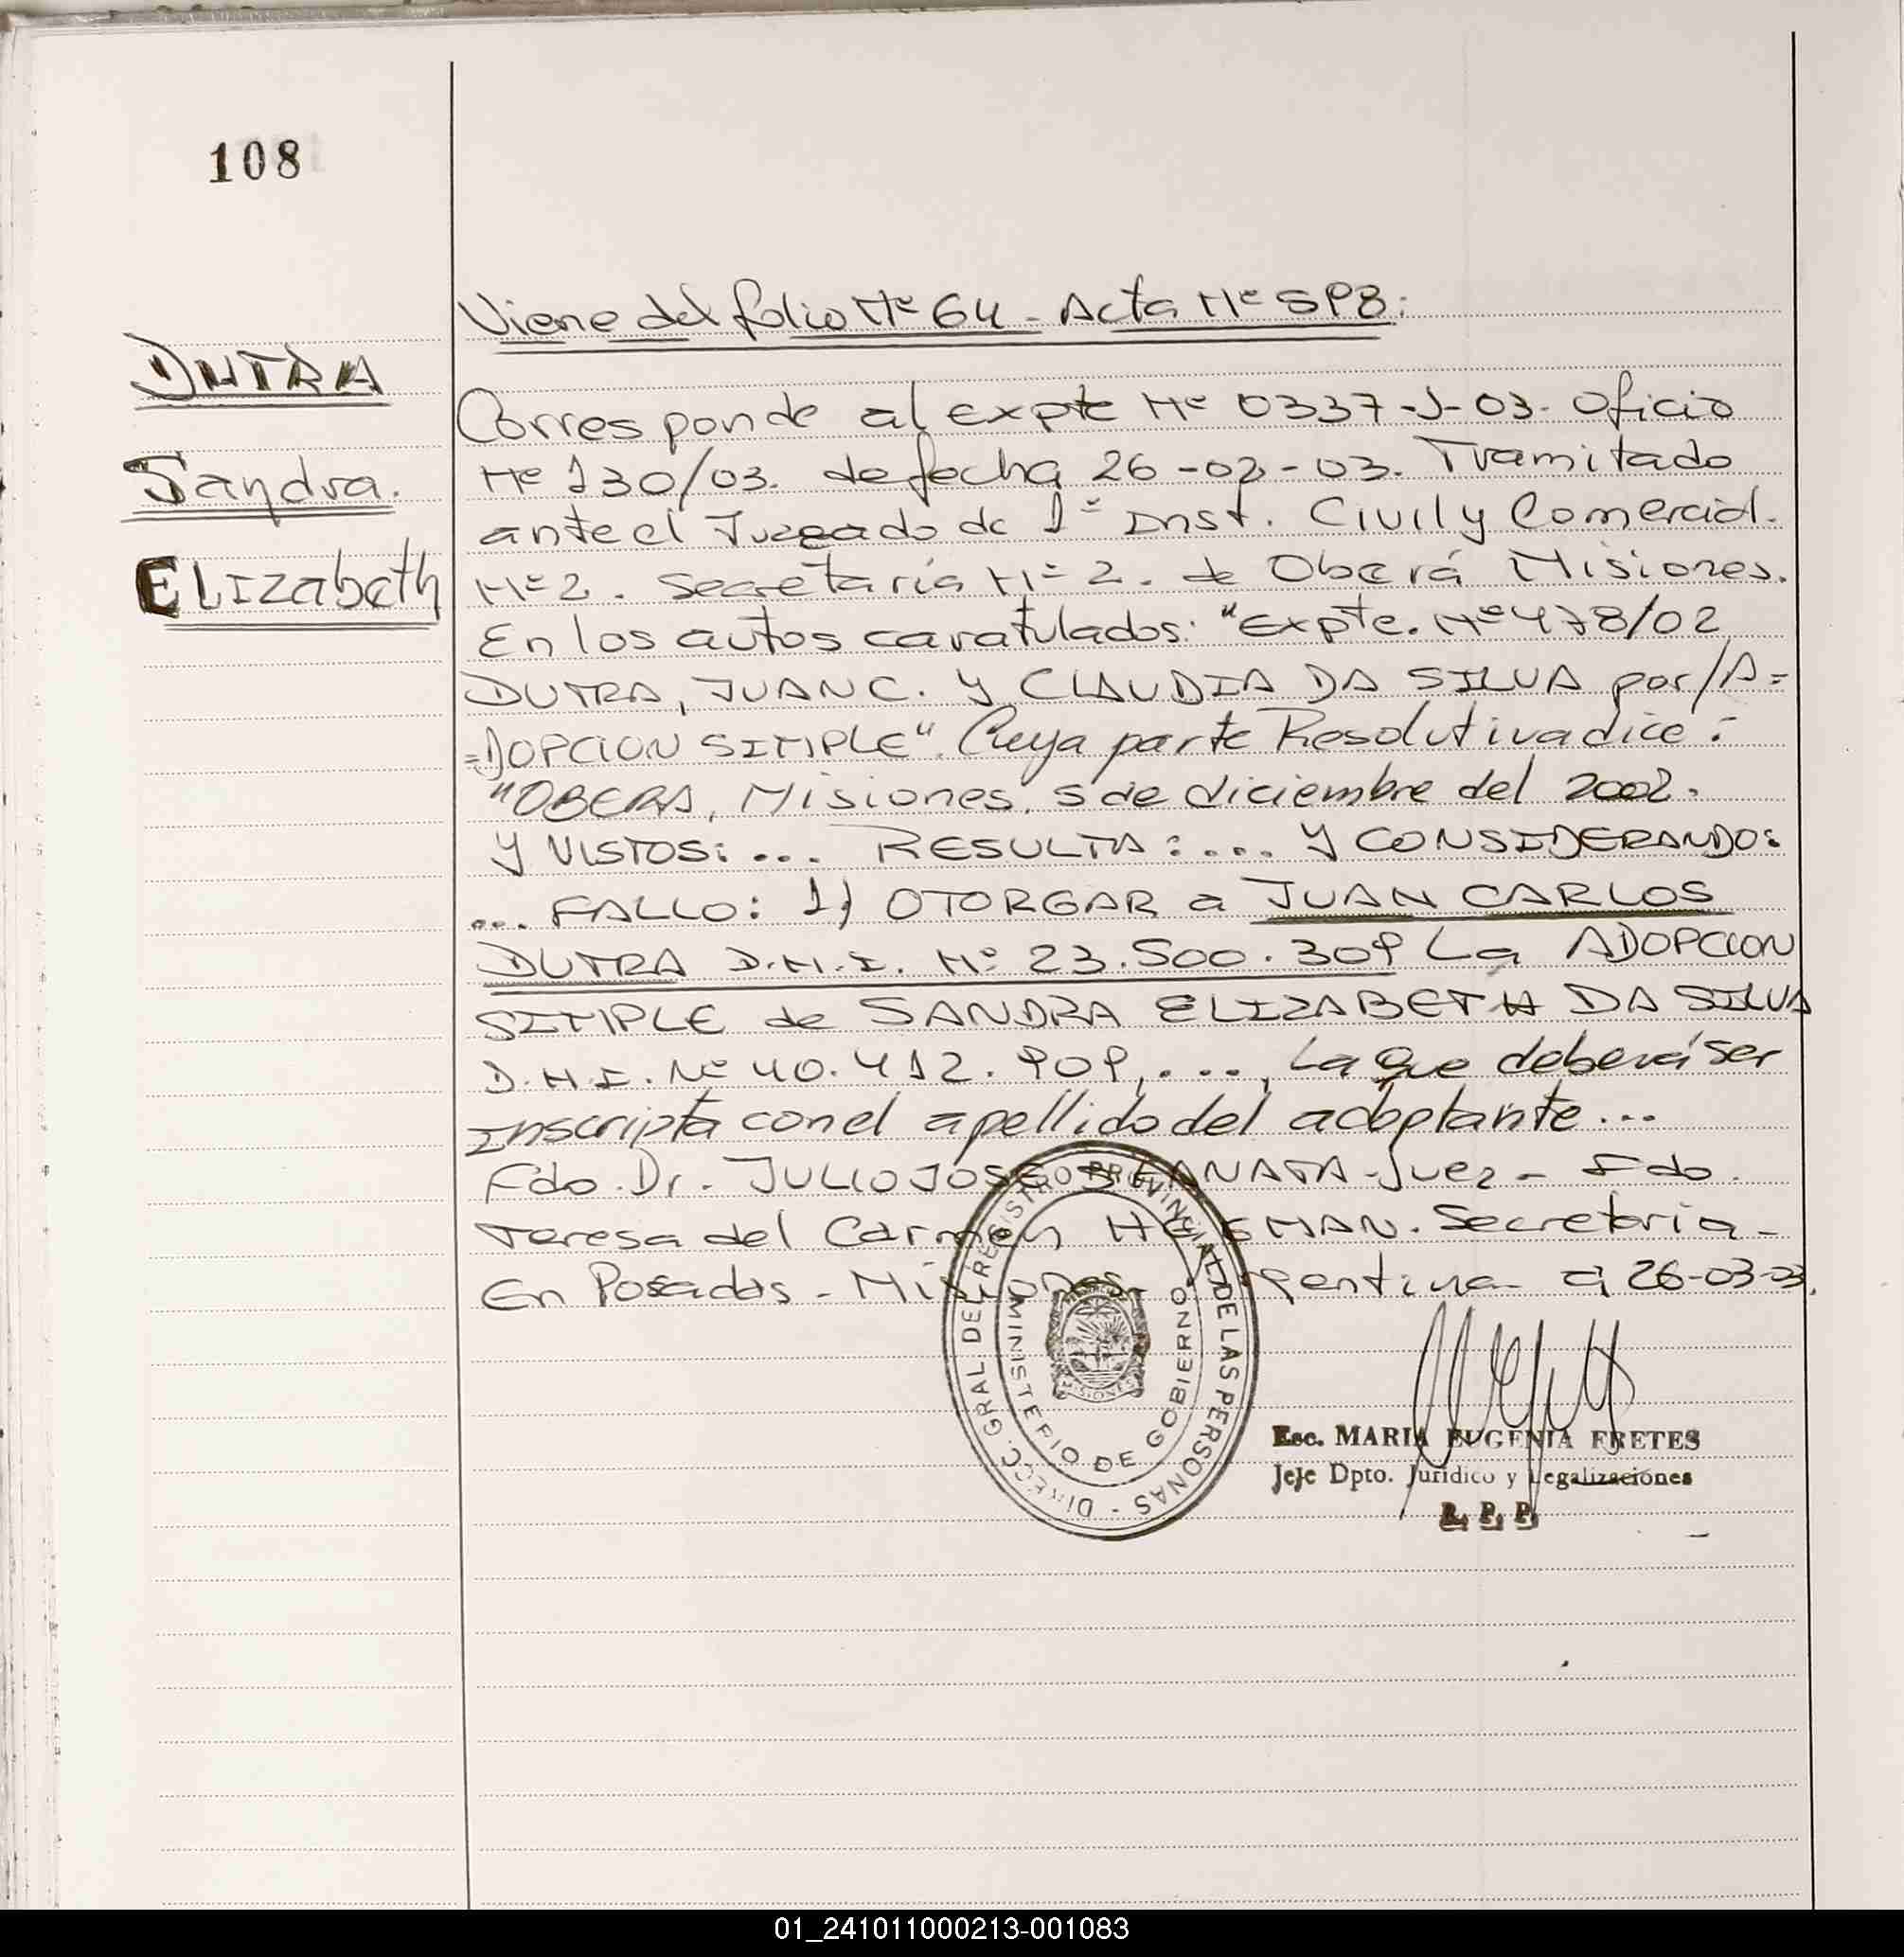 108
Viene del folio Nº 64 - Acta Nº 598:
DUTRA
Sandra.
ELIzabeth
Corresponde al expte Nº 0337-J-03. Oficio
Nº 130/03. de fecha 26-02-03. Tramitado
ante el Juzgado de 1º Inst. Civil y Comercial.
Nº 2. Secretaría Nº 2. de Oberá Misiones.
En los autos caratulados: "Expte. Nº 478/02
DUTRA, JUAN C. y CLAUDIA DA SILVA por/A=
=DOPCION SIMPLE". Cuya parte Resolutiva dice:
"OBERA, Misiones, 5 de diciembre del 2002.
Y VISTOS: ... RESULTA: ... Y CONSIDERANDO:
... FALLO: 1) OTORGAR a JUAN CARLOS
DUTRA D.N.I. Nº 23.500.309 La ADOPCION
SIMPLE de SANDRA ELIZABETH DA SILVA
D.N.I. Nº 40.412.909, ..., La que deberá ser
Inscripta con el apellido del adoptante...
Fdo. Dr. JULIO JOSE - Juez - Fdo.
Teresa del Carmen Secretaria -
En Posadas - Misiones. Argentina a 26-03-03.
DIRECC. GRAL DEL REGISTRO PROVINCIAL DE LAS PERSONAS -
MINISTERIO DE GOBIERNO
MISIONES
Esc. MARIA EUGENIA FRETES
Jefe Dpto. Jurídico y Legalizaciones
R. P. P.
01_241011000213-001083